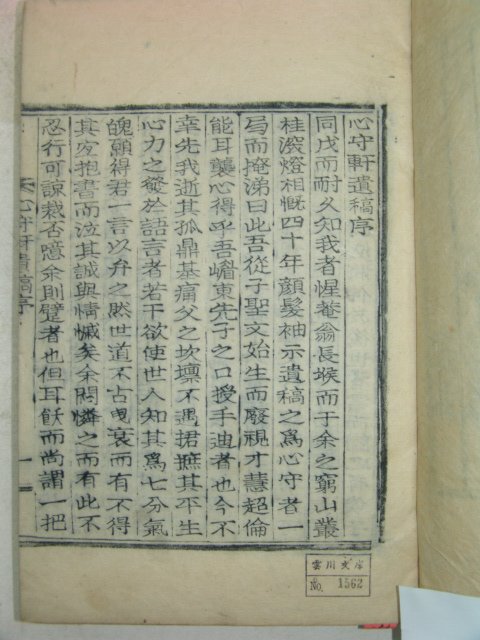 心守軒遺稿序
同戊而耐久知我者惺菴翁長堠而于余之窮山叢
桂滾燈相慨四十年顔髮袖示遺稿之爲心守者一
局而掩涕曰此吾從子聖文始生而廢視才慧超倫
能耳襲心得乎吾嶦東先子之口授手迪者也今不
幸先我逝其孤鼎基痛父之坎壈不遇捃摭其平生
心力之發於語言者若干欲使世人知其爲七分氣
魄願得君一言以弁之然世道不古鬼衰而有不得
其皮抱書而泣其誠與情慽矣余悶憐之而有此不
忍行可諒裁否噫余則躄者也但耳飫而尚謂一把
心守軒遺稿序
一
雲川文庫
No. 1562